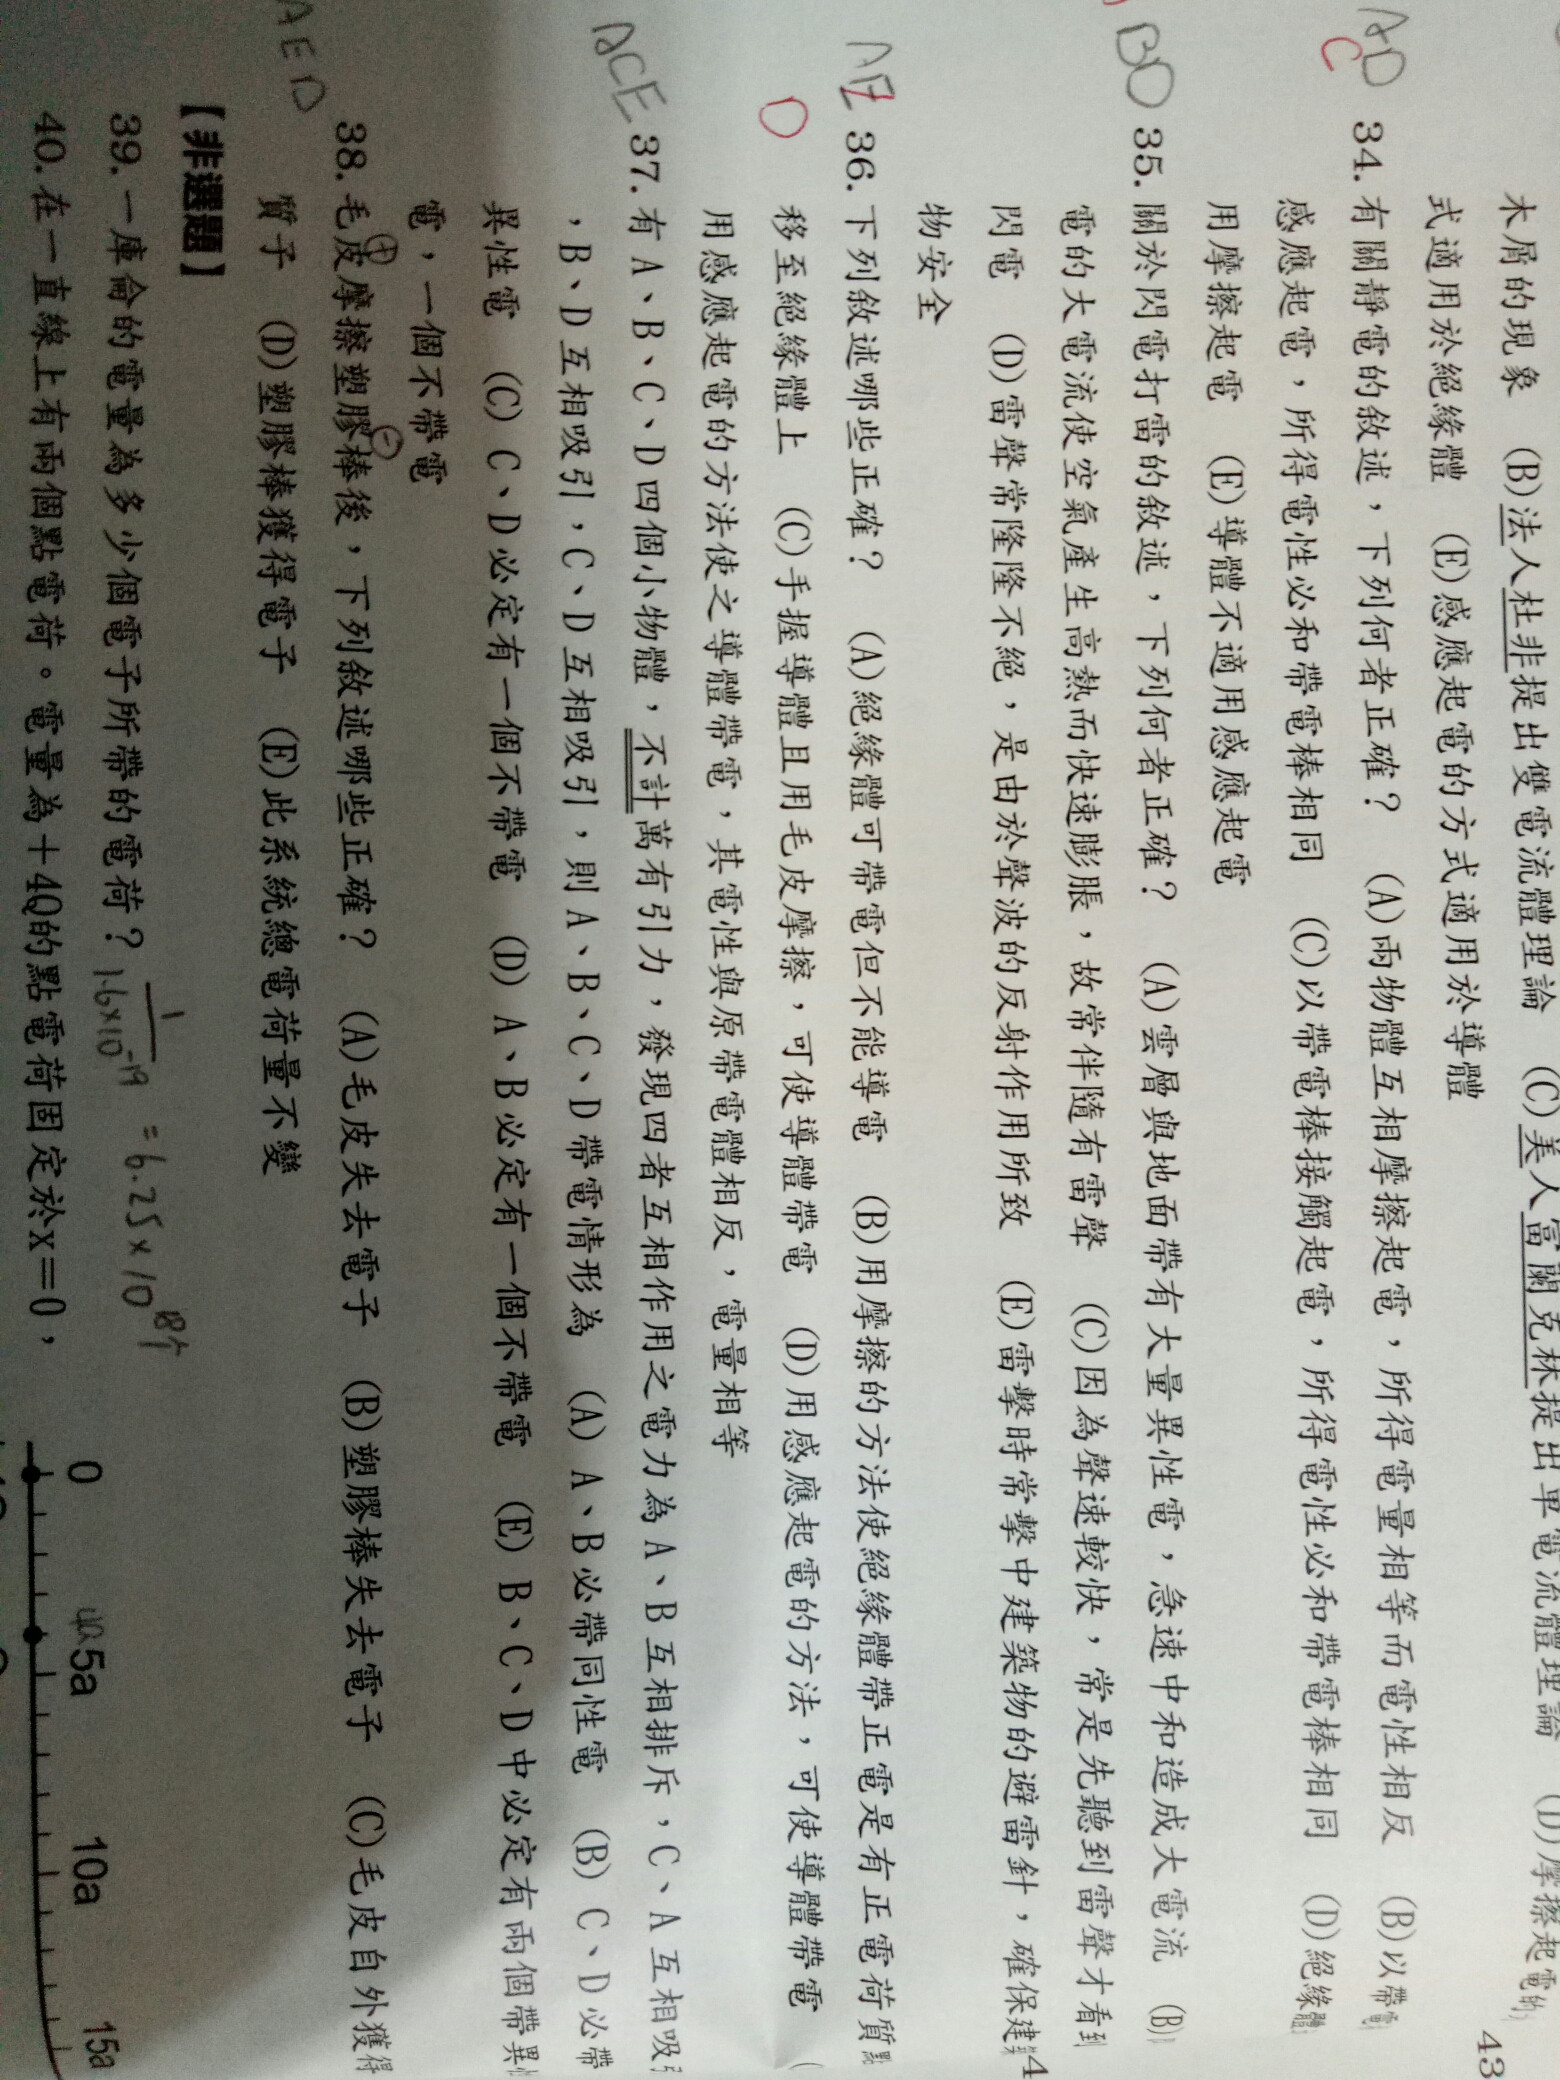 木屑的現象 (B)法人杜非提出雙電流體理論 (C)美人富蘭克林提出單電流體理論 (D)摩擦起電的
式適用於絕緣體 (E)感應起電的方式適用於導體
43
AD
C
34.有關靜電的敘述，下列何者正確？ (A)兩物體互相摩擦起電，所得電量相等而電性相反 (B)以帶電
感應起電，所得電性必和帶電棒相同 (C)以帶電棒接觸起電，所得電性必和帶電棒相同 (D)絕緣體
用摩擦起電 (E)導體不適用感應起電
BD
35.關於閃電打雷的敘述，下列何者正確？ (A)雲層與地面帶有大量異性電，急速中和造成大電流 (B)
電的大電流使空氣產生高熱而快速膨脹，故常伴隨有雷聲 (C)因為聲速較快，常是先聽到雷聲才看到
閃電 (D)雷聲常隆隆不絕，是由於聲波的反射作用所致 (E)雷擊時常擊中建築物的避雷針，確保建築
物安全
4
AE
D
36.下列敘述哪些正確？ (A)絕緣體可帶電但不能導電 (B)用摩擦的方法使絕緣體帶正電是有正電荷質點
移至絕緣體上 (C)手握導體且用毛皮摩擦，可使導體帶電 (D)用感應起電的方法，可使導體帶電 (
用感應起電的方法使之導體帶電，其電性與原帶電體相反，電量相等
ACE
37.有A、B、C、D四個小物體，不計萬有引力，發現四者互相作用之電力為A、B互相排斥，C、A互相吸引
，B、D互相吸引，C、D互相吸引，則A、B、C、D帶電情形為 (A) A、B必帶同性電 (B) C、D必帶
異性電 (C) C、D必定有一個不帶電 (D) A、B必定有一個不帶電 (E) B、C、D中必定有兩個帶異性
電，一個不帶電
AED
38.毛皮摩擦塑膠棒後，下列敘述哪些正確？ (A)毛皮失去電子 (B)塑膠棒失去電子 (C)毛皮自外獲得
⊕ ⊖
質子 (D)塑膠棒獲得電子 (E)此系統總電荷量不變
【非選題】
39.一庫侖的電量為多少個電子所帶的電荷？ 1/1.6×10⁻¹⁹ = 6.25×10¹⁸个
40.在一直線上有兩個點電荷。電量為＋4Q的點電荷固定於x＝0，
0 5a 10a 15a